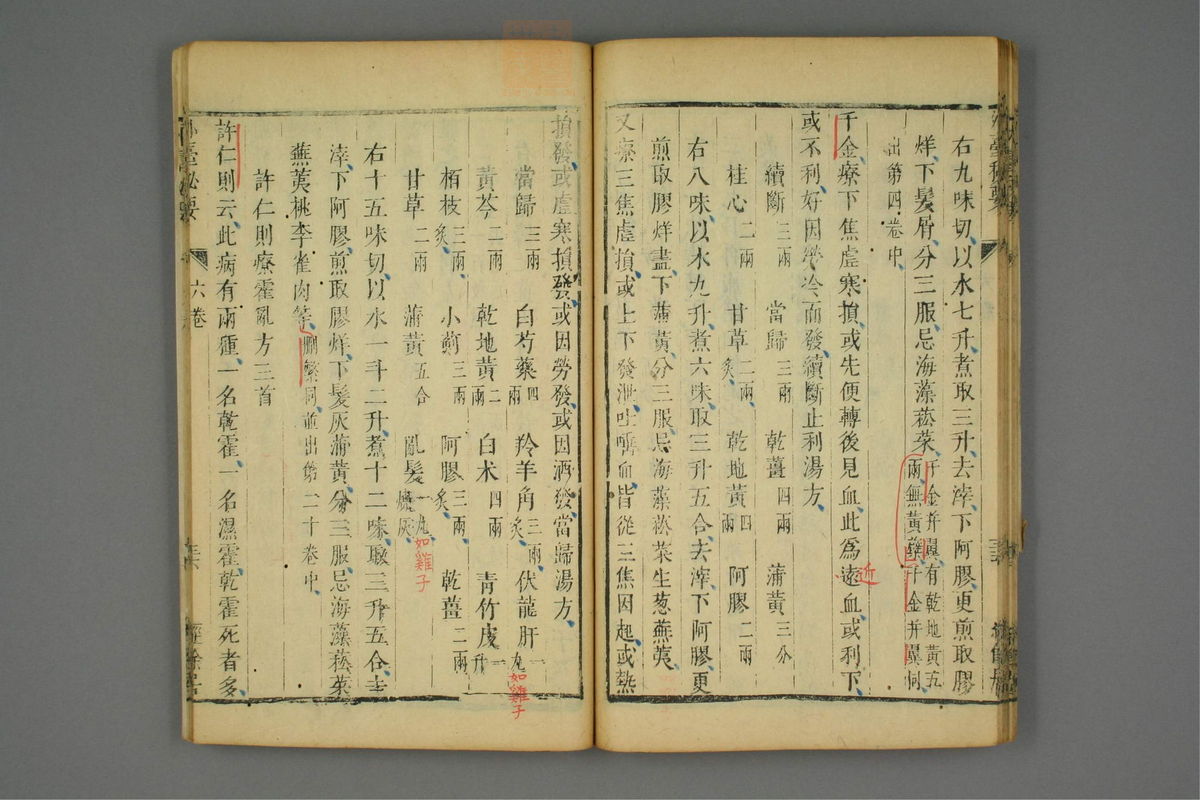 右九味切以水七升煮取三升去滓下阿膠更煎取膠
烊下髮屑分三服忌海藻菘菜千金并翼有乾地黃五兩無黃蘗千金并翼同
出第四卷中
千金療下焦虛寒損或先便轉後見血此爲遠血或利下
近
或不利好因勞冷而發續斷止利湯方
續斷三兩 當歸三兩 乾薑四兩 蒲黃三分
桂心二兩 甘草二兩炙 乾地黃四兩 阿膠二兩
右八味以水九升煮六味取三升五合去滓下阿膠更
煎取膠烊盡下蒲黃分三服忌海藻菘菜生葱蕪荑
又療三焦虛損或上下發泄吐唾血皆從三焦因起或熱
損發或虛寒損發或因勞發或因酒發當歸湯方
當歸三兩 白芍藥四兩 羚羊角三兩炙 伏龍肝一丸
如雞子
黃芩二兩 乾地黃二兩 白朮四兩 青竹皮一升
栢枝三兩炙 小薊三兩 阿膠三兩炙 乾薑二兩
甘草二兩 蒲黃五合 亂髮一丸燒灰
如雞子
右十五味切以水一斗二升煮十二味取三升五合去
滓下阿膠煎取膠烊下髮灰蒲黃分三服忌海藻菘菜
蕪荑桃李雀肉等刪繁同並出第二十卷中
許仁則療霍亂方三首
許仁則云此病有兩種一名乾霍一名濕霍乾霍死者多
外臺秘要 六卷